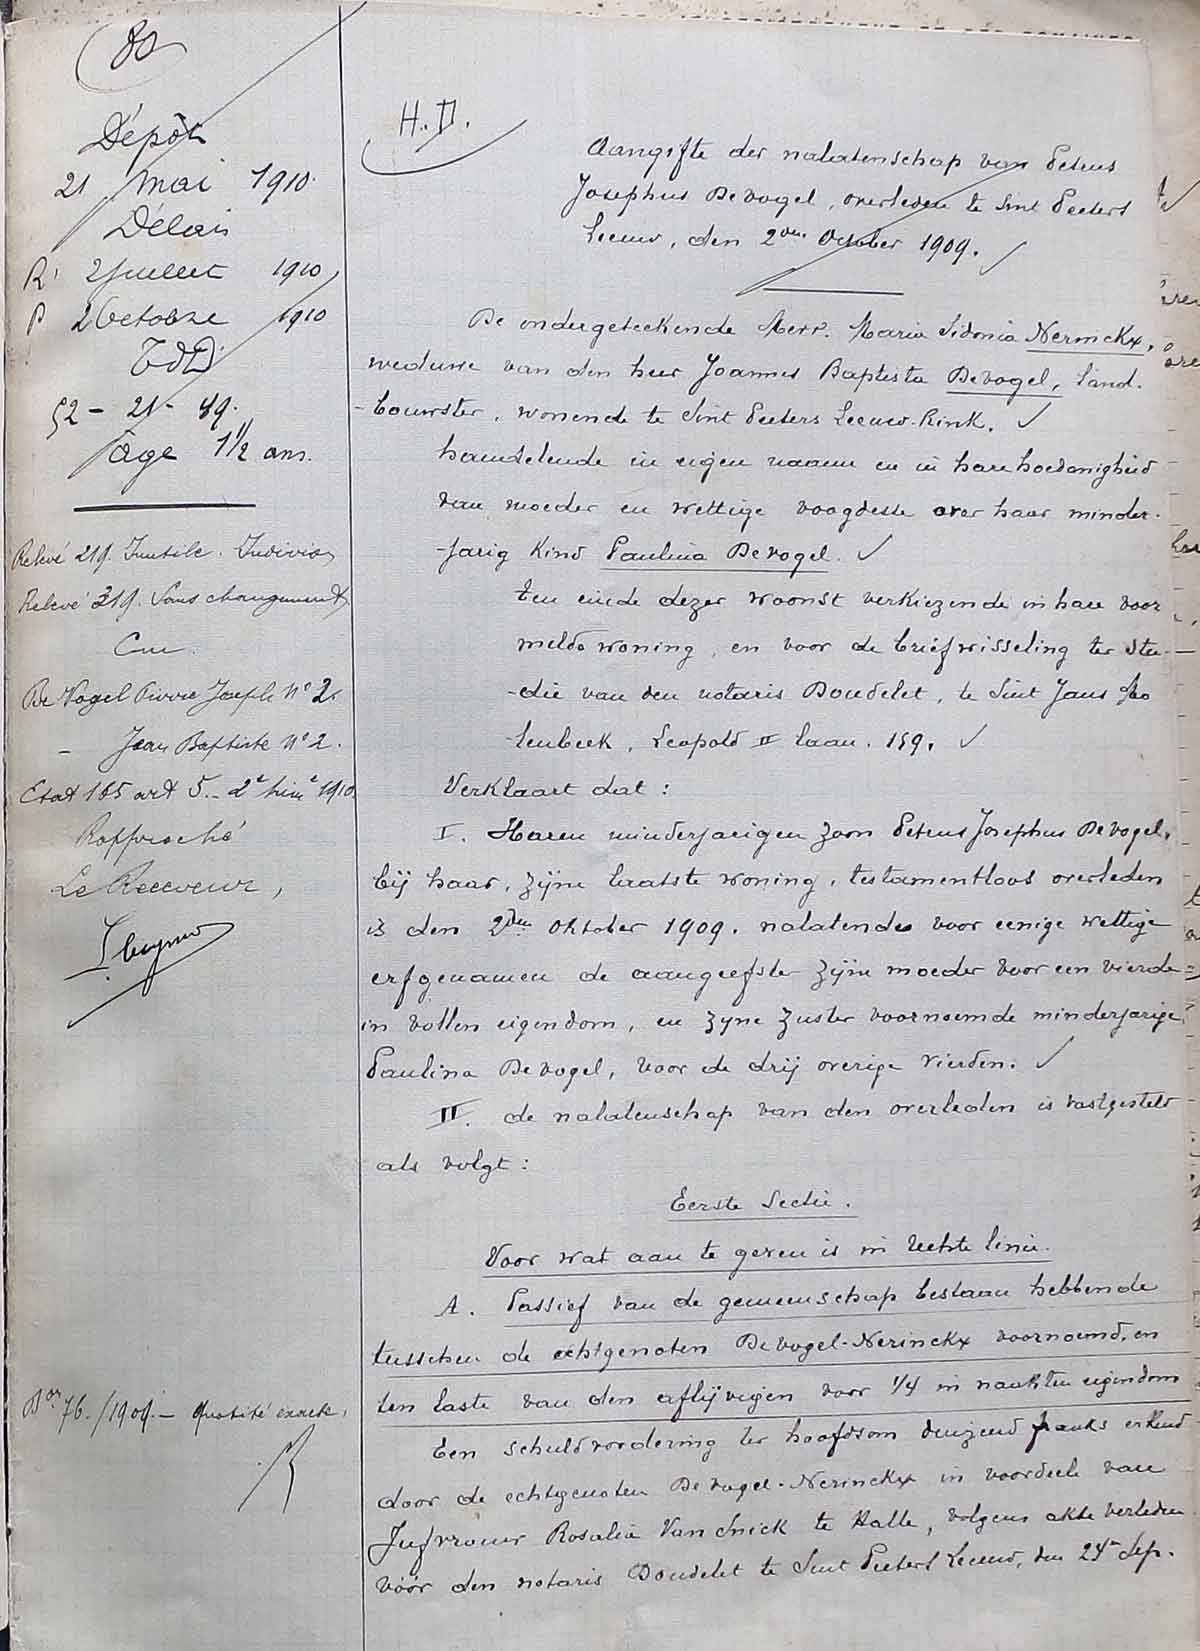 80
Dépôt
21 mai 1910.
Délais
R' 2 Juillet 1910
P 2 Octobre 1910
52 - 21 - 49.
âge 1 1/2 ans.
Relevé 219. Inutile. Indivis
Relevé 319. Sans changement
De Vogel Pierre Joseph N° 2.
- Jean Baptiste N° 2.
Etat 165 art 5. 2e 1910
Le Receveur,
76./1909. - quotité exacte.
H.D.
Aangifte der nalatenschap van Petrus
Josephus De Vogel, overleden te Sint Peeters
Leeuw, den 2den October 1909.
De ondergeteekende Mevr. Maria Sidonia Nerinckx,
weduwe van den heer Joannes Baptista De Vogel, land-
bouwster, wonende te Sint Peeters Leeuw-Rink.
handelende in eigen naam en in hare hoedanigheid
van moeder en wettige voogdesse over haar minder-
-jarig kind Paulina De Vogel.
ten einde dezer woonst verkiezende in hare voor
melde woning, en voor de briefwisseling ter stu-
-die van den notaris Doudelet, te Sint Jans Mo
lenbeek, Leopold II laan. 159.
Verklaart dat:
I. Haren minderjarigen zoon Petrus Josephus De Vogel,
bij haar, zijne laatste woning, testamentloos overleden
is den 2den Oktober 1909. nalatende voor eenige wettige
erfgenamen de aangeefster zijne moeder voor een vierde
in vollen eigendom, en zyne zuster voornoemde minderjarige
Paulina De Vogel, voor de drij overige vierden.
II. de nalatenschap van den overleden is vastgesteld
als volgt:
Eerste Sectie.
Voor wat aan te geven is in rechte linie.
A. Passief van de gemeenschap bestaan hebbende
tusschen de echtgenoten De Vogel-Nerinckx voornoemd, en
ten laste van den aflijvigen voor 1/4 in naakten eigendom
Een schuldvordering ter hoofdsom duizend franks erkend
door de echtgenoten De Vogel-Nerinckx in voordeele van
Jufvrouw Rosalia Van Snick te Halle, volgens akte verleden
vóór den notaris Doudelet te Sint Pieters Leeuw, den 24n Sep.